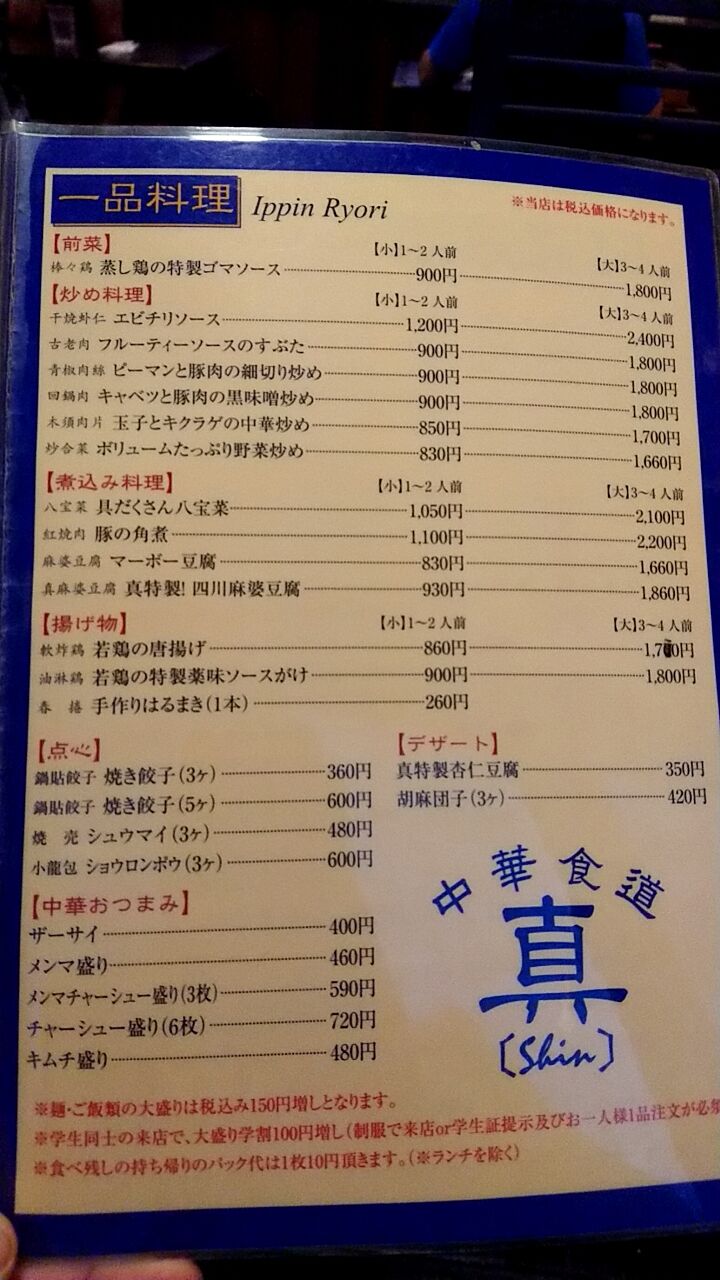 一品料理 Ippin Ryori
※当店は税込価格になります。
【前菜】 【小】1～2人前 【大】3～4人前
棒々鶏 蒸し鶏の特製ゴマソース 900円 1,800円
【炒め料理】 【小】1～2人前 【大】3～4人前
干焼虾仁 エビチリソース 1,200円 2,400円
古老肉 フルーティーソースのすぶた 900円 1,800円
青椒肉絲 ピーマンと豚肉の細切り炒め 900円 1,800円
回鍋肉 キャベツと豚肉の黒味噌炒め 900円 1,800円
木須肉片 玉子とキクラゲの中華炒め 850円 1,700円
炒合菜 ボリュームたっぷり野菜炒め 830円 1,660円
【煮込み料理】 【小】1～2人前 【大】3～4人前
八宝菜 具だくさん八宝菜 1,050円 2,100円
紅焼肉 豚の角煮 1,100円 2,200円
麻婆豆腐 マーボー豆腐 830円 1,660円
真麻婆豆腐 真特製! 四川麻婆豆腐 930円 1,860円
【揚げ物】 【小】1～2人前 【大】3～4人前
軟炸鶏 若鶏の唐揚げ 860円
油淋鶏 若鶏の特製薬味ソースがけ 900円 1,800円
春捲 手作りはるまき(1本) 260円
【点心】
鍋貼餃子 焼き餃子(3ヶ) 360円
鍋貼餃子 焼き餃子(5ヶ) 600円
焼売 シュウマイ(3ヶ) 480円
小龍包 ショウロンポウ(3ヶ) 600円
【中華おつまみ】
ザーサイ 400円
メンマ盛り 460円
メンマチャーシュー盛り(3枚) 590円
チャーシュー盛り(6枚) 720円
キムチ盛り 480円
【デザート】
真特製杏仁豆腐 350円
胡麻団子(3ヶ) 420円
中華食道
真
[Shin]
※麺・ご飯類の大盛りは税込み150円増しとなります。
※学生同士の来店で、大盛り学割100円増し(制服で来店or学生証提示及びお一人様1品注文が必須
※食べ残しの持ち帰りのパック代は1枚10円頂きます。(※ランチを除く)